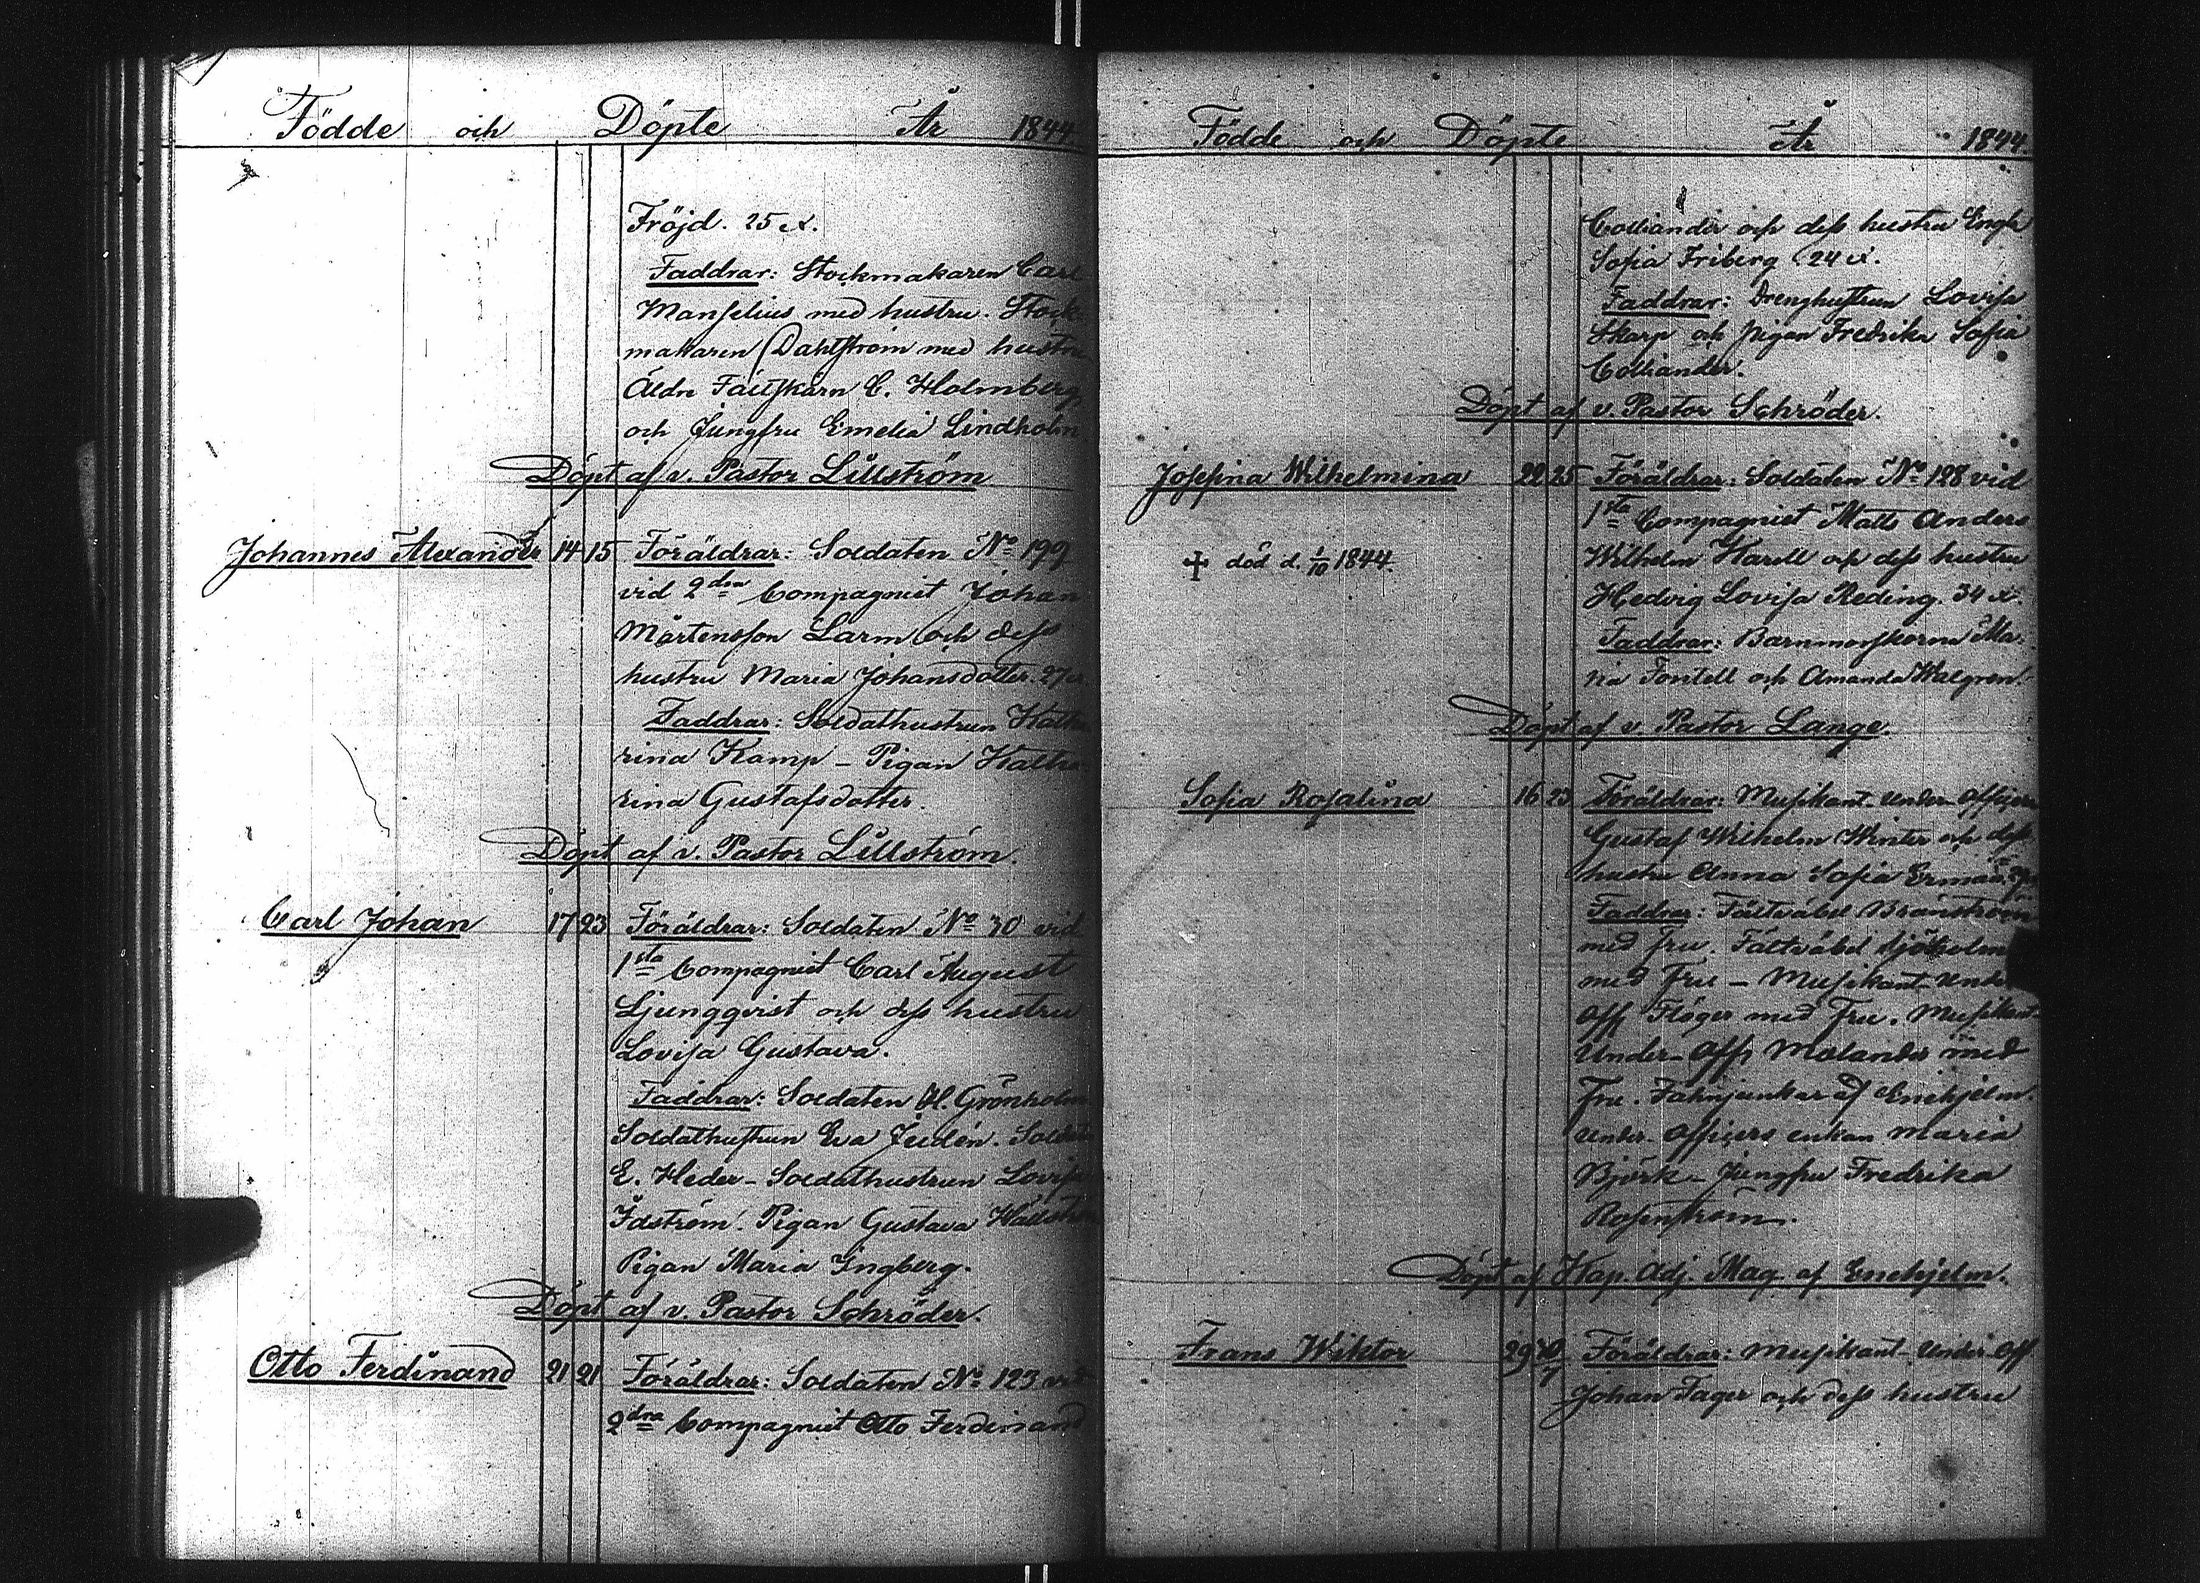 Födde och Döpte År 1844.
Fröjd. 25 år.
Faddrar: Stockmakaren Carl
Manselius med hustru. Stock-
makaren Dahlström med hustru
Äldre Fältskärn C. Holmberg
och Jungfru Emelia Lindholm
Döpt af v. Pastor Lillström
Johannes Alexander 14 15 Föräldrar: Soldaten No 199
vid 2dra Compagniet Johan
Mårtensson Larm och dess
hustru Maria Johansdotter. 27 år
Faddrar: Soldathustrun Katha
rina Kamp – Pigan Katha-
rina Gustafsdotter.
Döpt af v. Pastor Lillström.
Carl Johan 17 23 Föräldrar: Soldaten No 30 vid
1sta Compagniet Carl August
Ljungqvist och dess hustru
Lovisa Gustava.
Faddrar: Soldaten H. Grönholm
Soldathustrun Eva Judén. Soldat
E. Heder – Soldathustrun Lovisa
Idström. Pigan Gustava Hällström
Pigan Maria Ingberg.
Döpt af v. Pastor Schröder.
Otto Ferdinand 21 21 Föräldrar: Soldaten No 123 vid
2dra Compagniet Otto Ferdinand
Födde och Döpte År 1844.
Colliander och dess hustru Engla
Sofia Friberg 24 år.
Faddrar: Drenghustrun Lovisa
Skarp och pigan Fredrika Sofia
Colliander.
Döpt af v. Pastor Schröder.
Josefina Wilhelmina 22 25 Föräldrar: Soldaten No 128 vid
1sta Compagniet Matts Anders
† död d. 1/10 1844. Wilhelm Harell och dess hustru
Hedvig Lovisa Reding. 34 år.
Faddrar: Barnmorskorna Ma-
ria Fontell och Amanda Walgren.
Döpt af v. Pastor Lange.
Sofia Rosalina 16 23 Föräldrar: Musikant-Under-Officern
Gustaf Wilhelm Winter och dess
hustru Anna Sofia Erman
Faddrar: Fältväbel Brånström
med fru. Fältväbel Sjöholm
med Fru – Musikant-Under
Off. Flöger med Fru. Musikant
Under-Off. Melander med
Fru. Fahnjunkar af Enehjelm.
Under-Officers enkan Maria
Björk – Jungfru Fredrika
Rosenström.
Döpt af Kap. Adj. Mag. af Enehjelm.
Frans Wiktor 29 30/7 Föräldrar: Musikant Under Off
Johan Fager och dess hustru